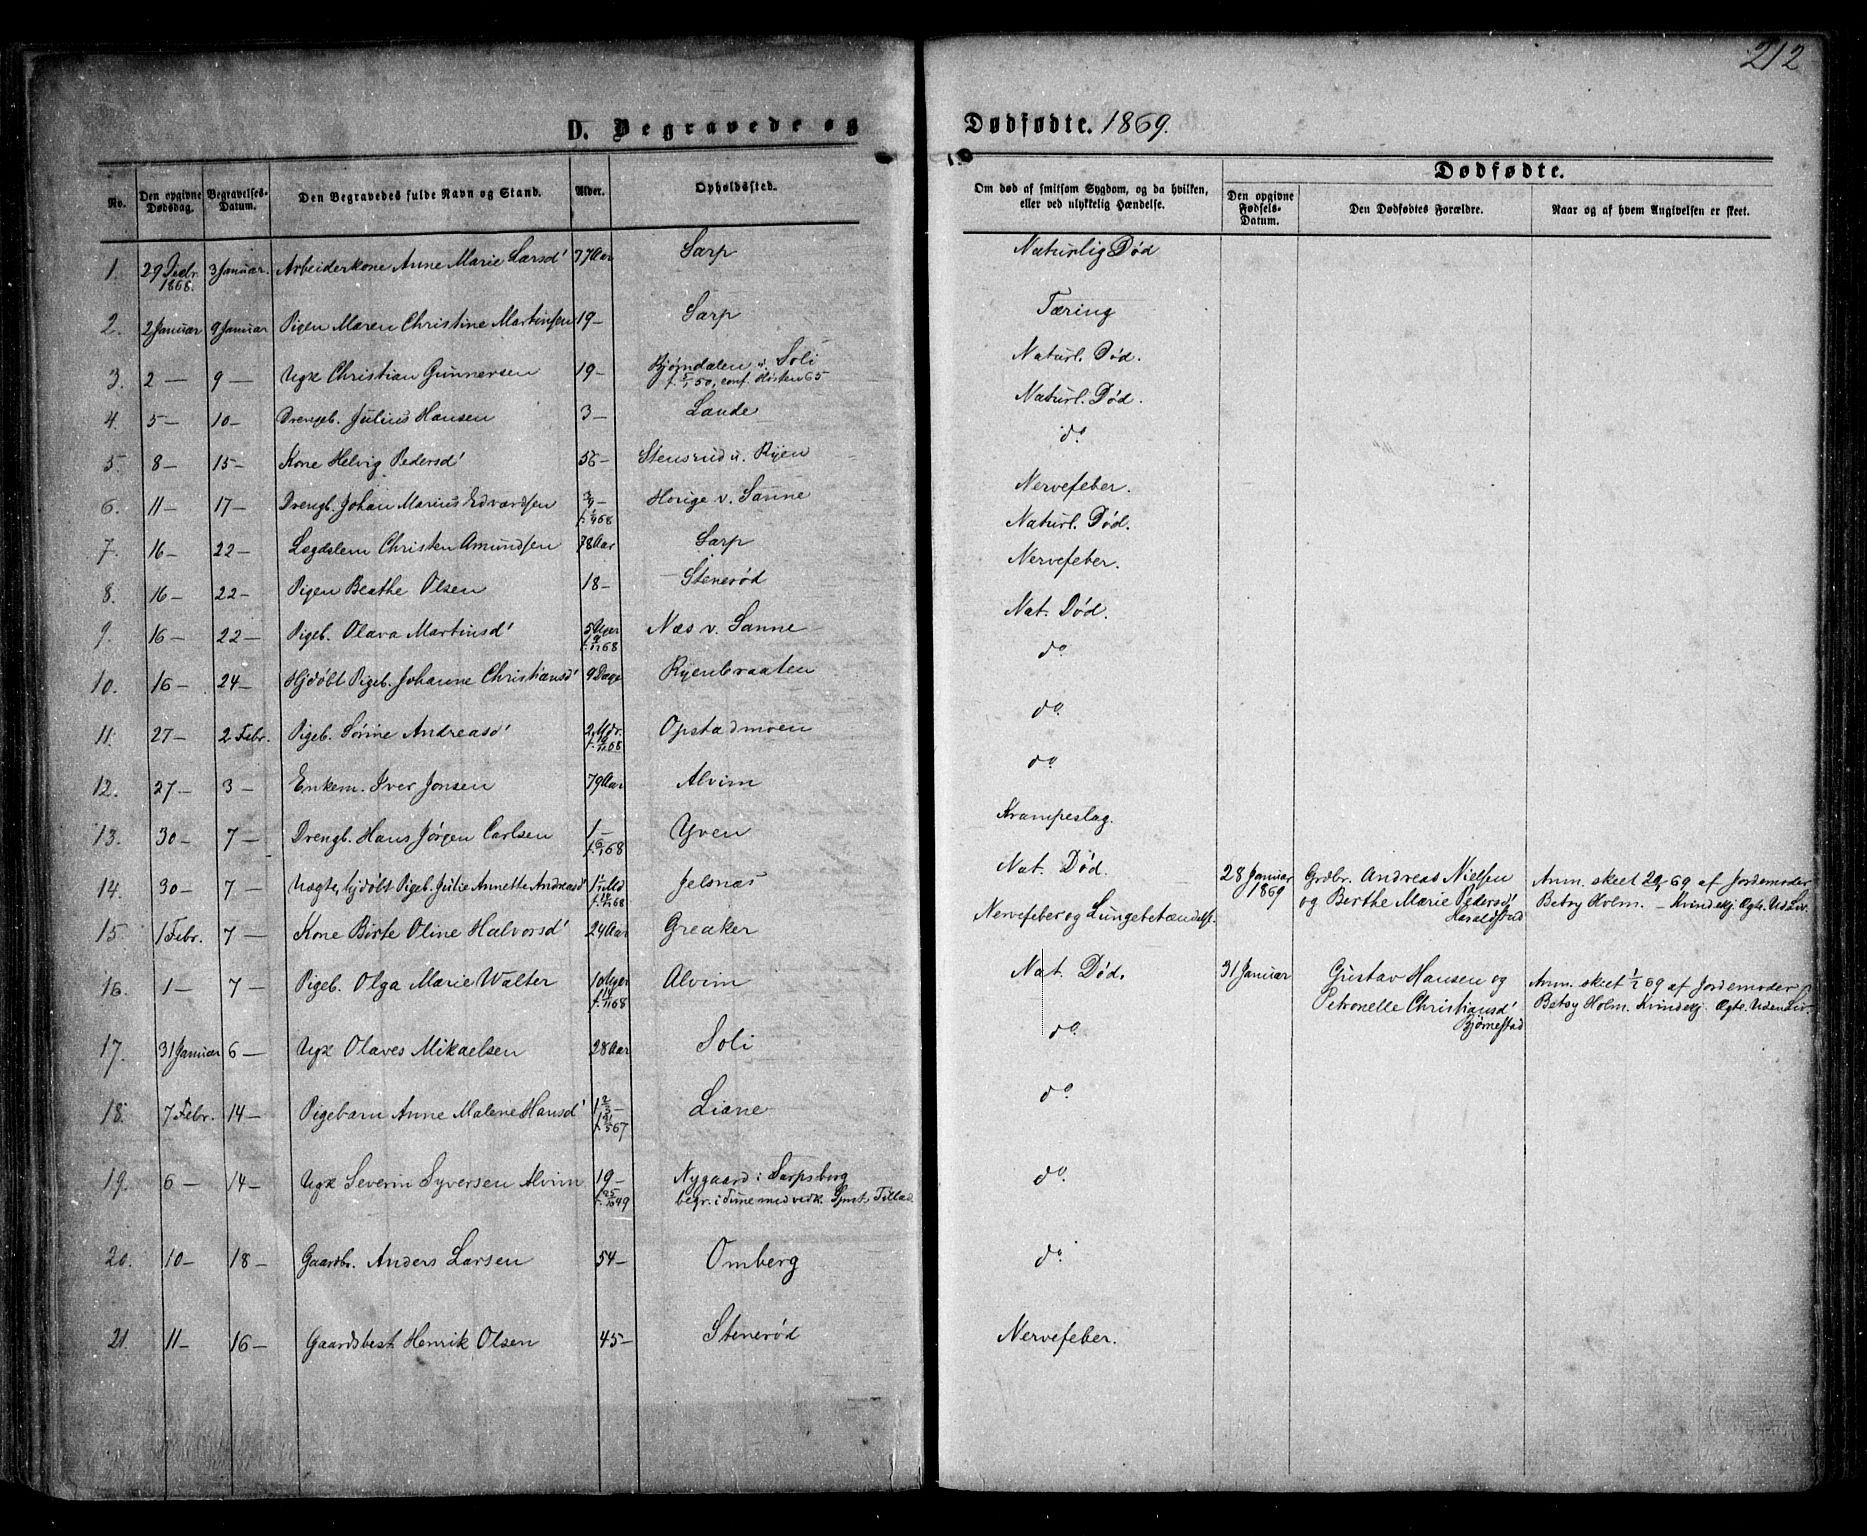 212
D. Begravede og Dødfødte. 1869.
No. Den opgivne Dødsdag. Begravelses-Datum. Den Begravedes fulde Navn og Stand. Alder. Opholdssted. Om død af smitsom Sygdom, og da hvilken, eller ved ulykkelig Hændelse.
Dødfødte.
Den opgivne Fødsels-Datum. Den Dødfødtes Forældre. Naar og af hvem Angivelsen er skeet.
1. 29 Decbr. 1868. 3 Januar. Arbeiderkone Anne Marie Larsd' 77 Aar Sarp Naturlig Død
2. 2 Januar 9 Januar Pigen Maren Christine Martinsen 19 – Sarp Tæring
3. 2 — 9 — Ugk Christian Gunnersen 19 – Bjørndalen u. Soli Naturl. Død.
f. 5/1 50, conf. Høsten 65
4. 5 — 10 – Drengeb. Julius Hansen 3 – Lande Naturl. Død.
5. 8 – 15 – Kone Helvig Pedersd' 56 – Stensrud u. Ryen do
6. 11 – 17 – Drengb. Johan Marius Edvardsen 3/4 – Horige v. Sanne Nervefeber.
7. 16 – 22 – Lægdslem Christen Amundsen 78 Aar Sarp Naturl. Død.
8. 16 – 22 – Pigen Beathe Olsen 18 – Stenerød Nervefeber.
9. 16 – 22 – Pigeb. Olava Martinsd' 5 Uger Næs v. Sanne Nat. Død.
10. 16 – 24 – Hjdøbt Pigeb. Johanne Christiansd' 9 Dage Ryenbraaten do
11. 27 – 2 Febr. Pigeb. Sørine Andreasd' 2 Mdr. Opstadmoen do
12. 27 – 3 – Enkem. Iver Jonsen 79 Aar Alvim do
13. 30 – 7 – Drengb. Hans Jørgen Carlsen 1 – Yven Krampeslag.
f. 6/1 68
14. 30 – 7 – Uægte, hjdøbt Pigeb. Julie Annette Andreasd' Jelsnæs Nat. Død.
28 Januar 1869 Grdbr. Andreas Nielsen og Berthe Marie Pedersd' Haraldstad
Anm. skeet 69 af Jordemoder Betsy Holm. – Kvindekj. Ægte. Uden Liv.
15. 1 Febr. 7 – Kone Birte Oline Halvorsd' 24 Aar Greaker Nervefeber og Lungebetændelse.
16. 1 – 7 – Pigeb. Olga Marie Walter 10 Uger Alvim Nat. Død.
31 Januar Gustav Hansen og Petronelle Christiansd' Bjørnestad
Anm. skeet 1/2 69 af Jordemoder Betsy Holm. Kvindekj. Ægte. Uden Liv.
17. 31 Januar 6 – Ugk Olaves Mikaelsen 28 Aar Soli do
18. 7 Febr. 14 – Pigebarn Anne Malene Hansd' Liane do
19. 6 – 14 – Ugk Severin Syversen Alvim 19 – Nygaard i Sarpsborg do
f. 25/10 49 begr. i Tune med vedk. Spræst. Tillad.
20. 10 – 18 – Gaardbr. Anders Larsen 54 – Omberg do
21. 11 – 16 – Gaardsbest. Henrik Olsen 45 – Stenerød Nervefeber.